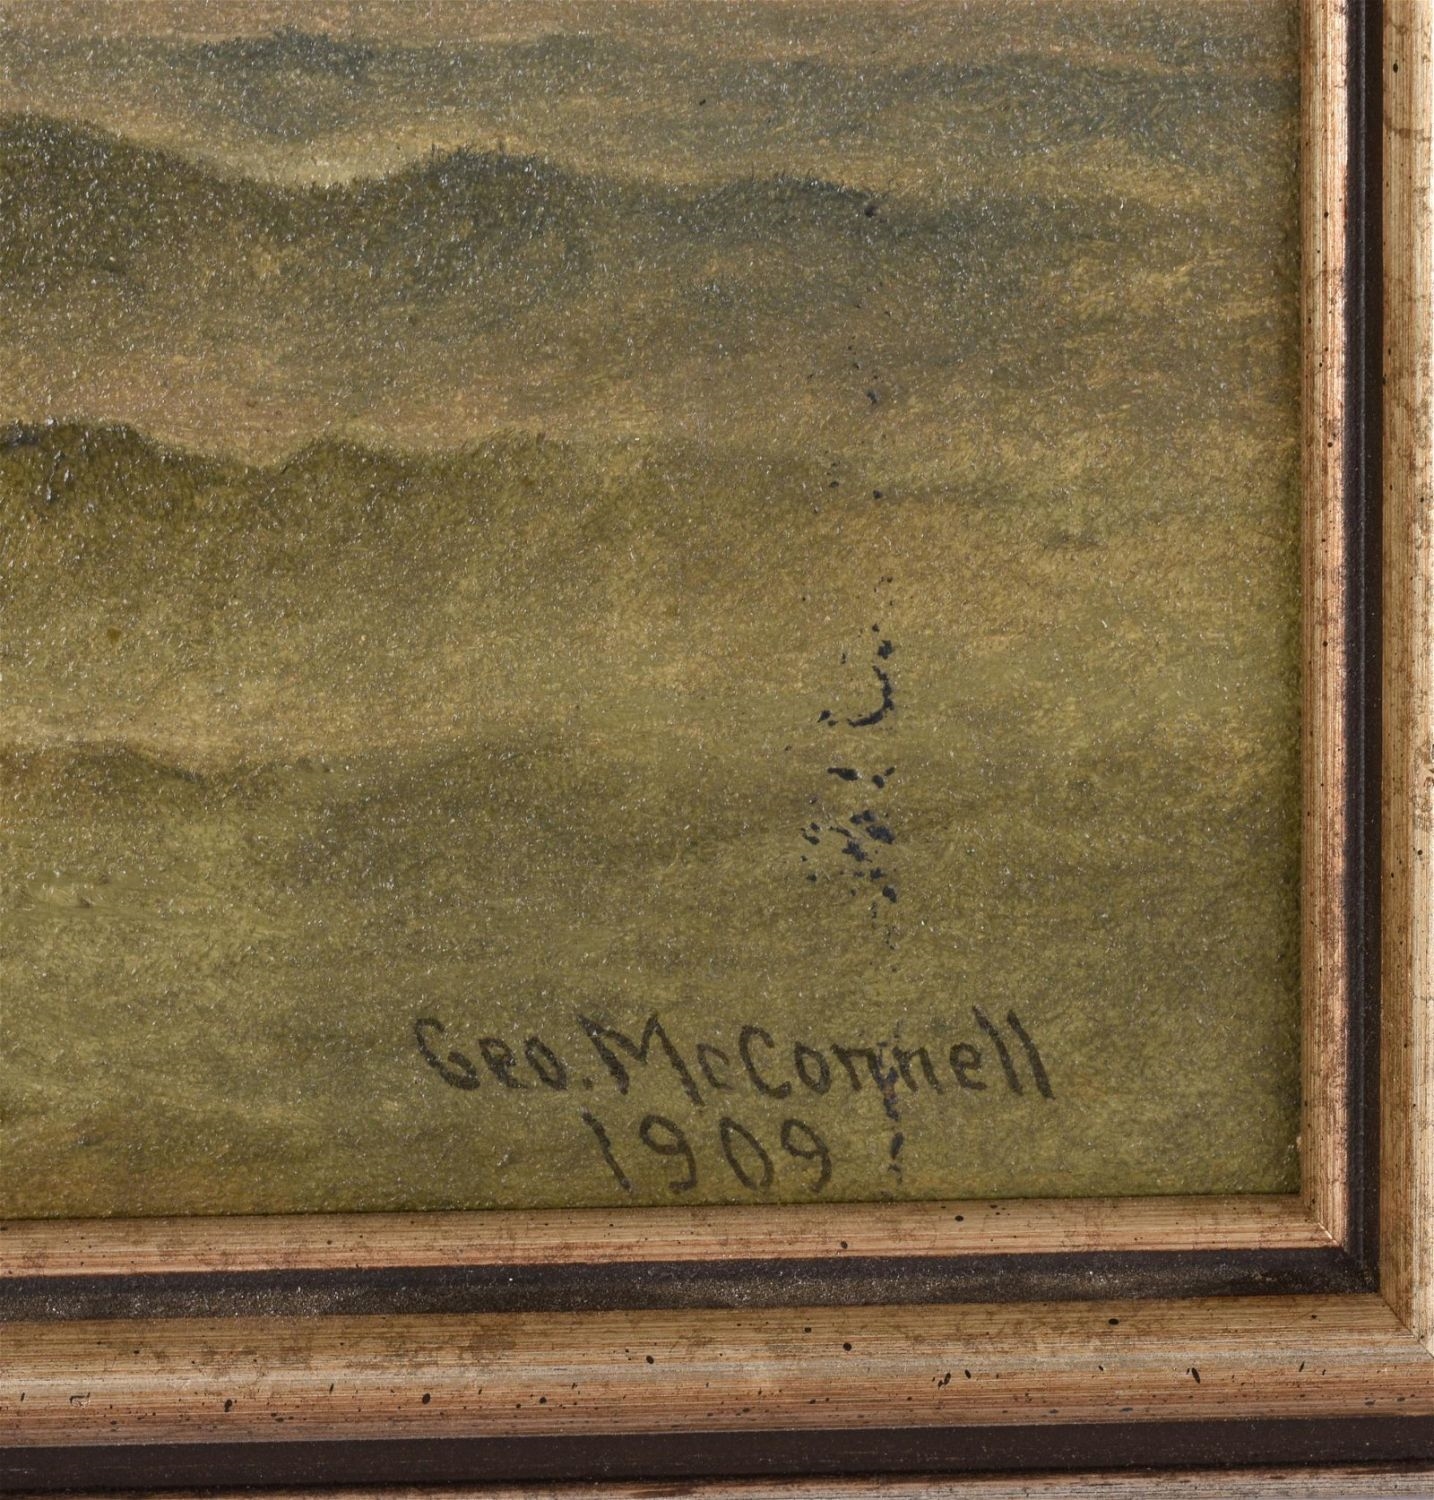 Geo. McConnell
1909